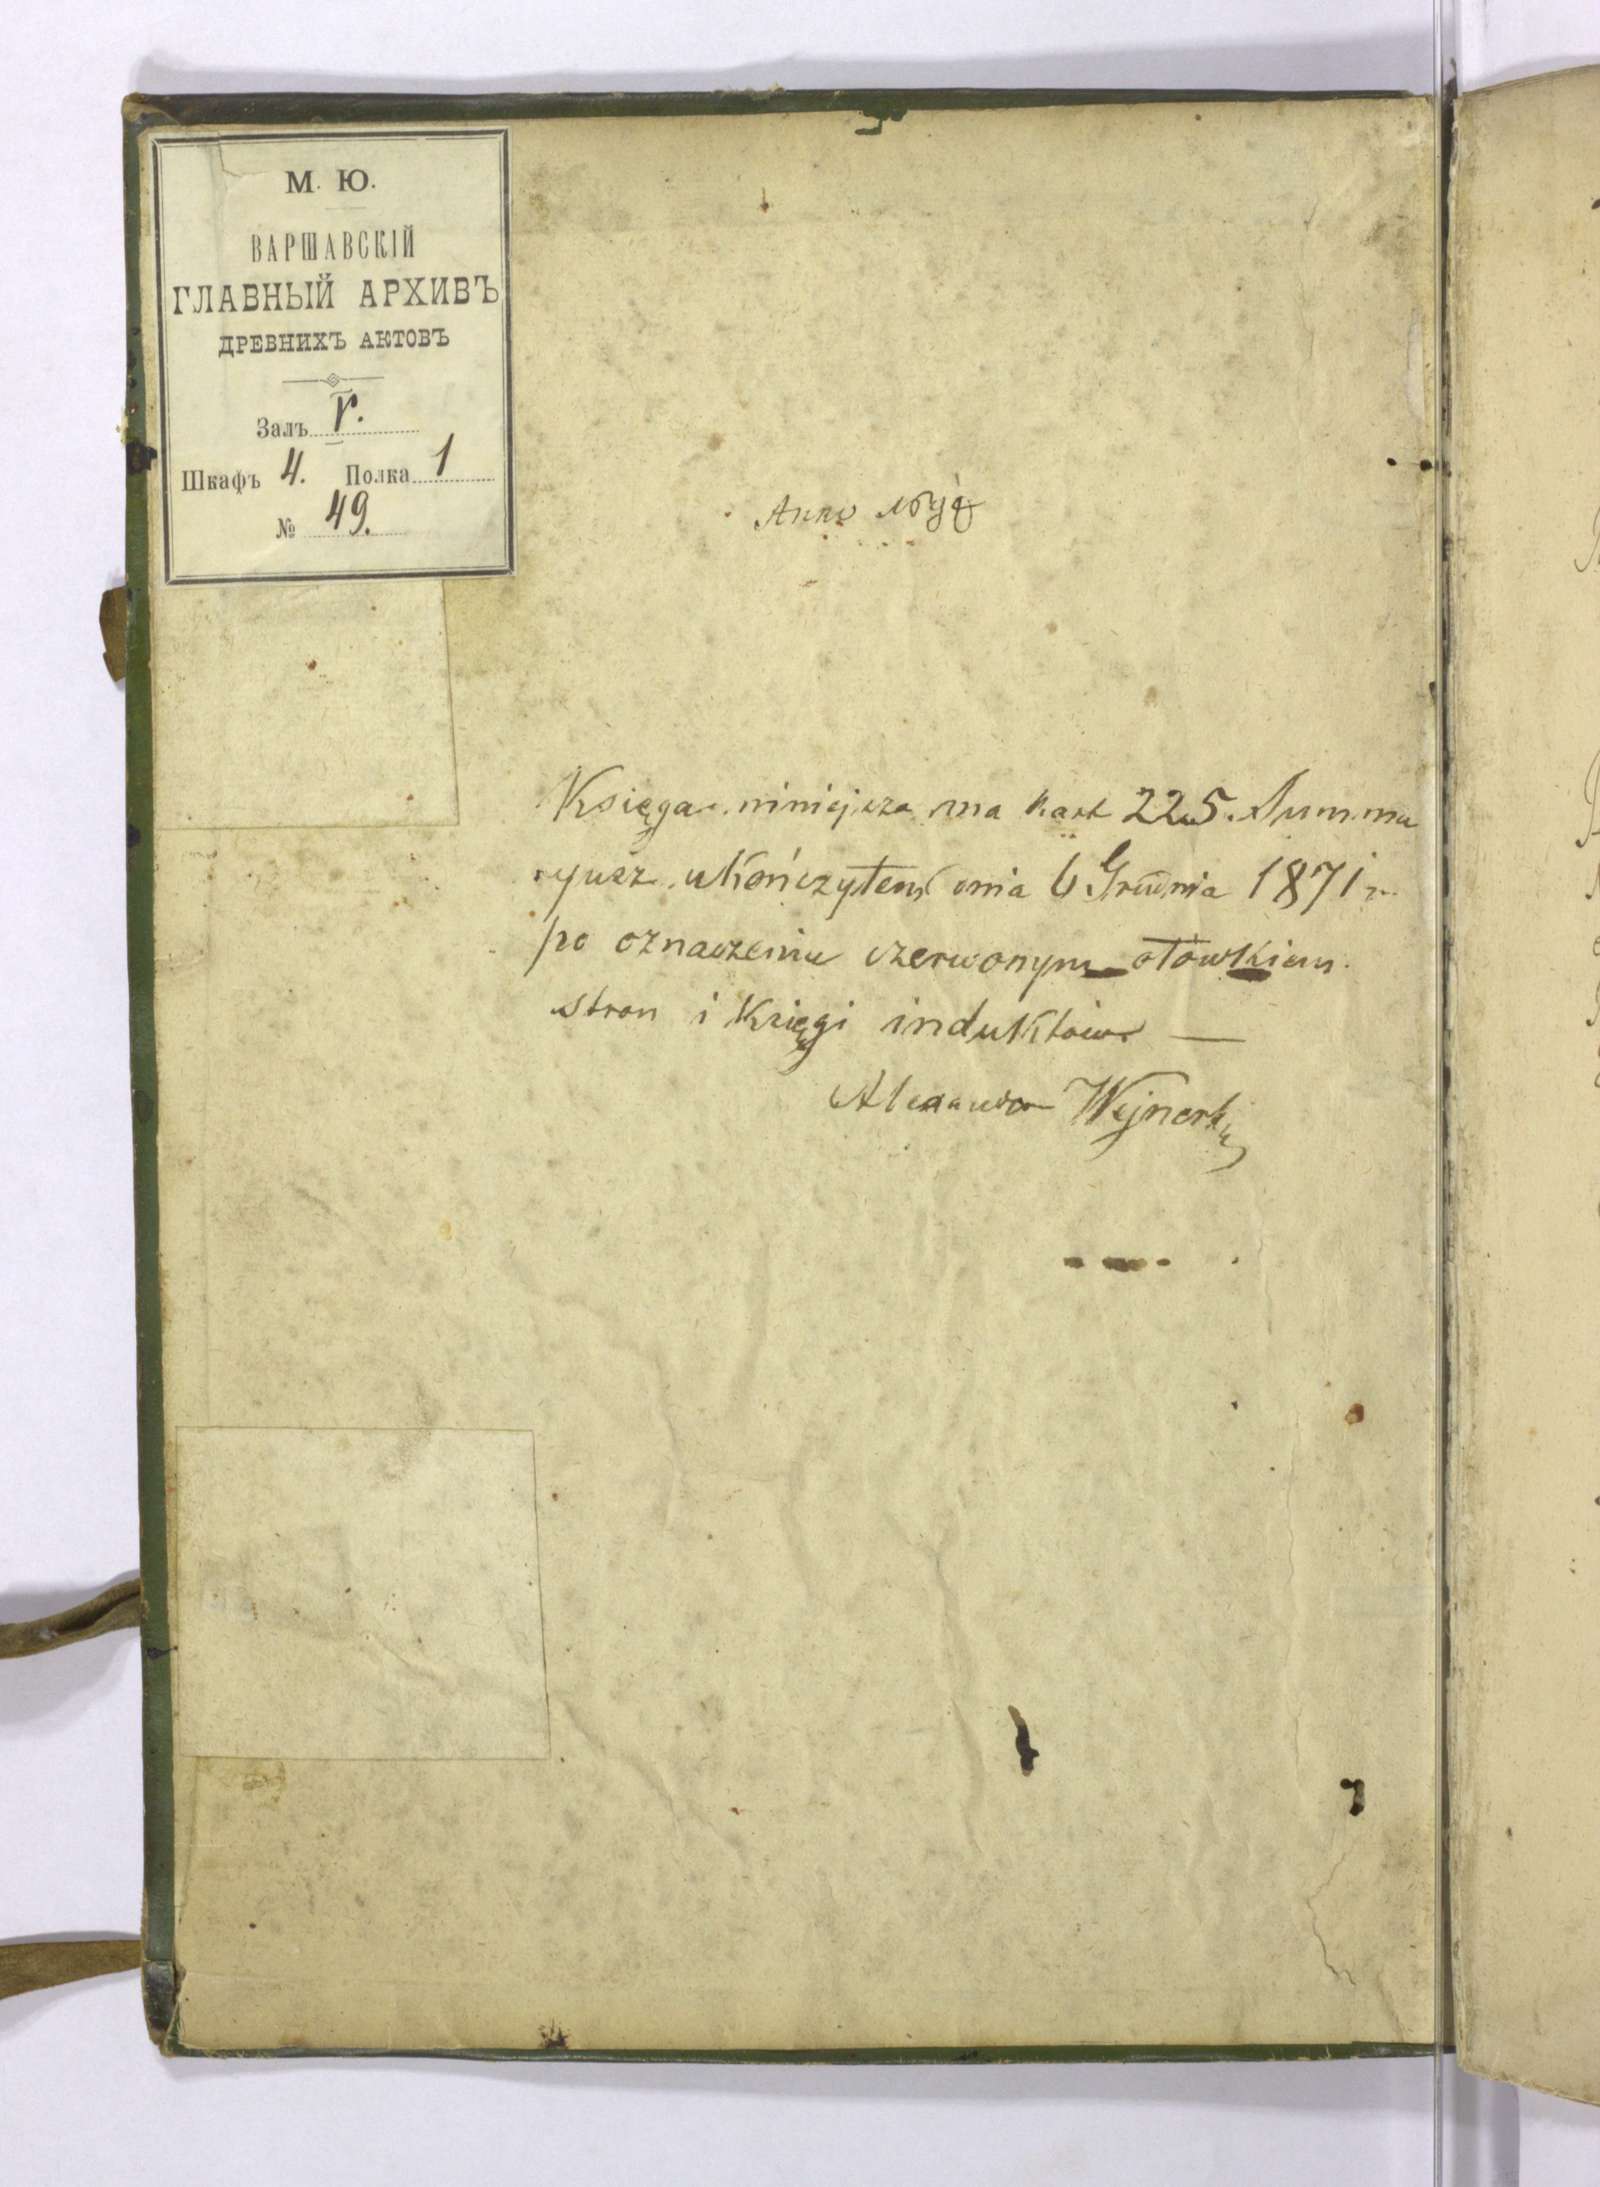 М. Ю.
ВАРШАВСКІЙ
ГЛАВНЫЙ АРХИВЪ
ДРЕВНИХЪ АКТОВЪ
Залъ V.
Шкафъ 4. Полка 1
№ 49.
Anno
Księga niniejsza ma kart 225. Summa
ryusz ukończyłem dnia 6 Grudnia 1871 r.
po oznaczeniu czerwonym ołówkiem
stron i Księgi induktów —
Alexander Wejnert